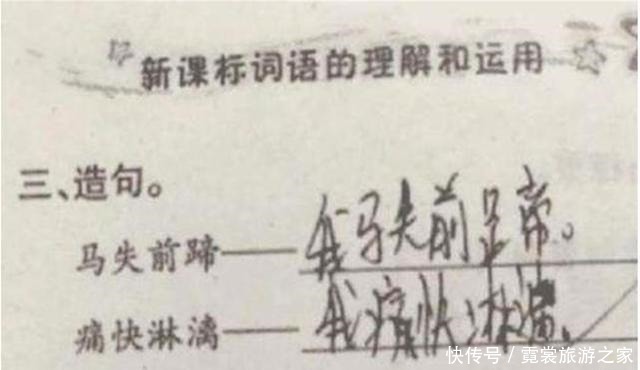 新课标词语的理解和运用
三、造句。
马失前蹄——我马失前蹄。
痛快淋漓——我痛快淋漓。
快传号/霓裳旅游之家